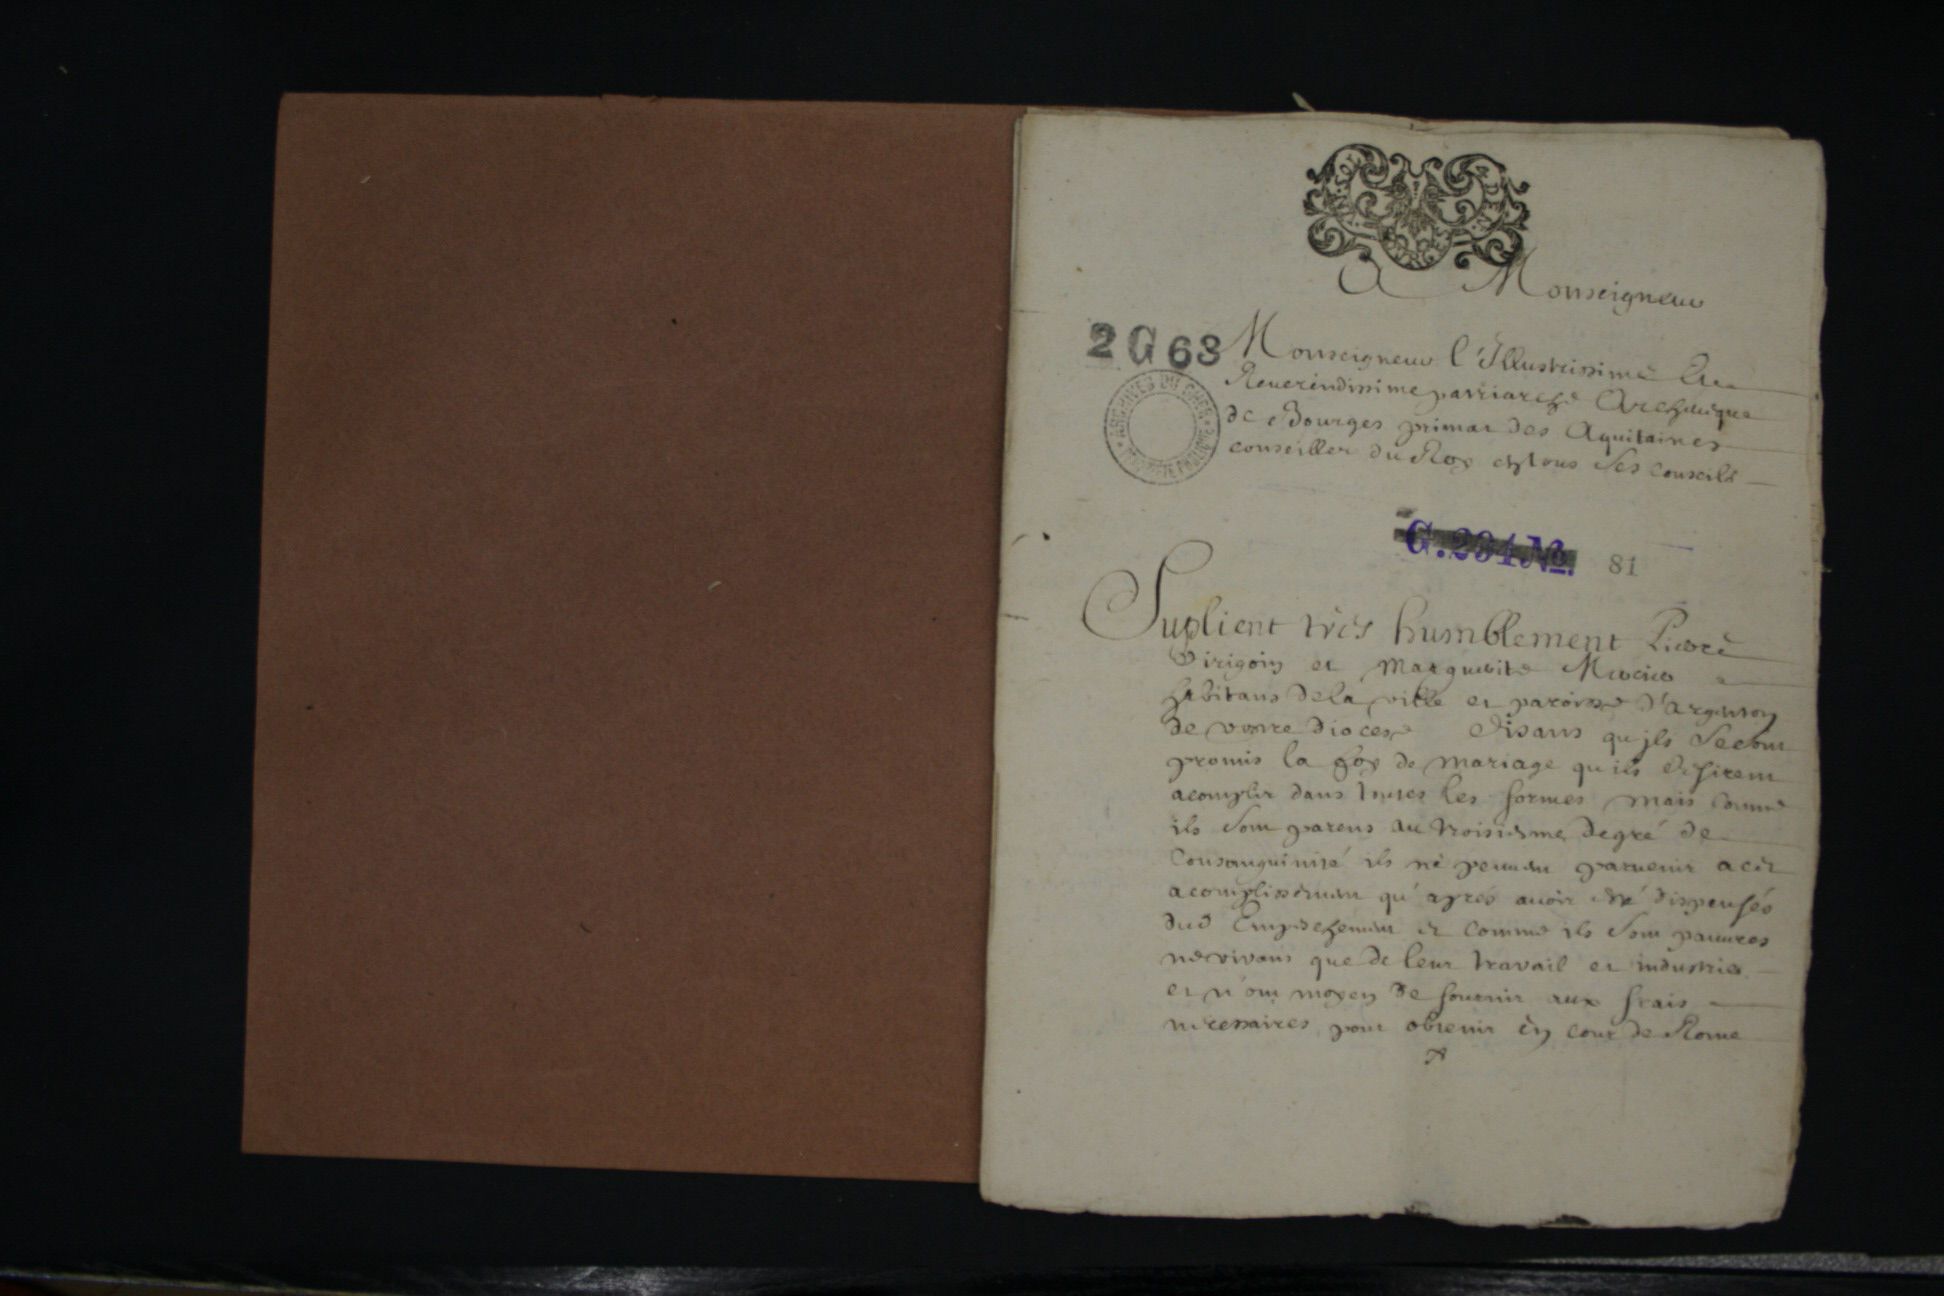 A Monseigneur
2 G 63
Monseigneur l'Illustrissime Et
Reuerendissime patriarche Archeuêque
de Bourges primat des Aquitaines
conseiller du Roy en tous ses conseils
ARCHIVES DU CHER
G. 234 No. 81
Suplient très humblement Pierre
Dirigoin et Marguerite Mercier
habitans de la ville et paroisse d'argenton
de vostre diocese Disans qu'jls se sont
promis la foy de mariage qu'ils desirent
acomplir dans toutes les formes mais comme
ils sont parens au troisiesme degré de
Consanguinité ils ne peuuent paruenir a cet
acomplissement qu'apres auoir esté dispensés
dud Empeschement et comme ils sont pauures
ne vivans que de leur travail et industrie
et n'ont moyen de fournir aux frais
necessaires pour obtenir en cour de Rome